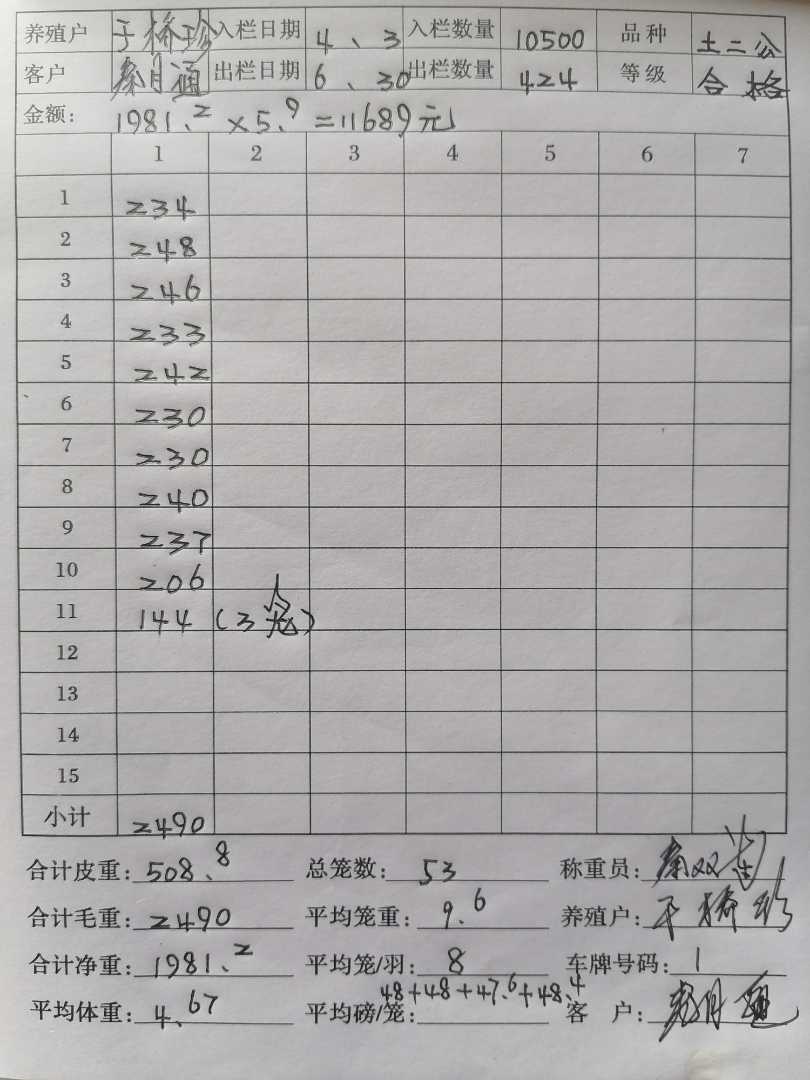 养殖户 于桥珍 入栏日期 4、3 入栏数量 10500 品种 土二公
客户 秦月通 出栏日期 6、30 出栏数量 424 等级 合格
金额: 1981.2 × 5.9 = 11689元
1 2 3 4 5 6 7
1 234
2 248
3 246
4 233
5 242
6 230
7 230
8 240
9 237
10 206
11 144 (3笼)
12
13
14
15
小计 2490
合计皮重: 508.8 总笼数: 53 称重员:
合计毛重: 2490 平均笼重: 9.6 养殖户: 于桥珍
合计净重: 1981.2 平均笼/羽: 8 车牌号码: 1
平均体重: 4.67 平均磅/笼: 48+48+47.6+48.4 客户: 秦月通